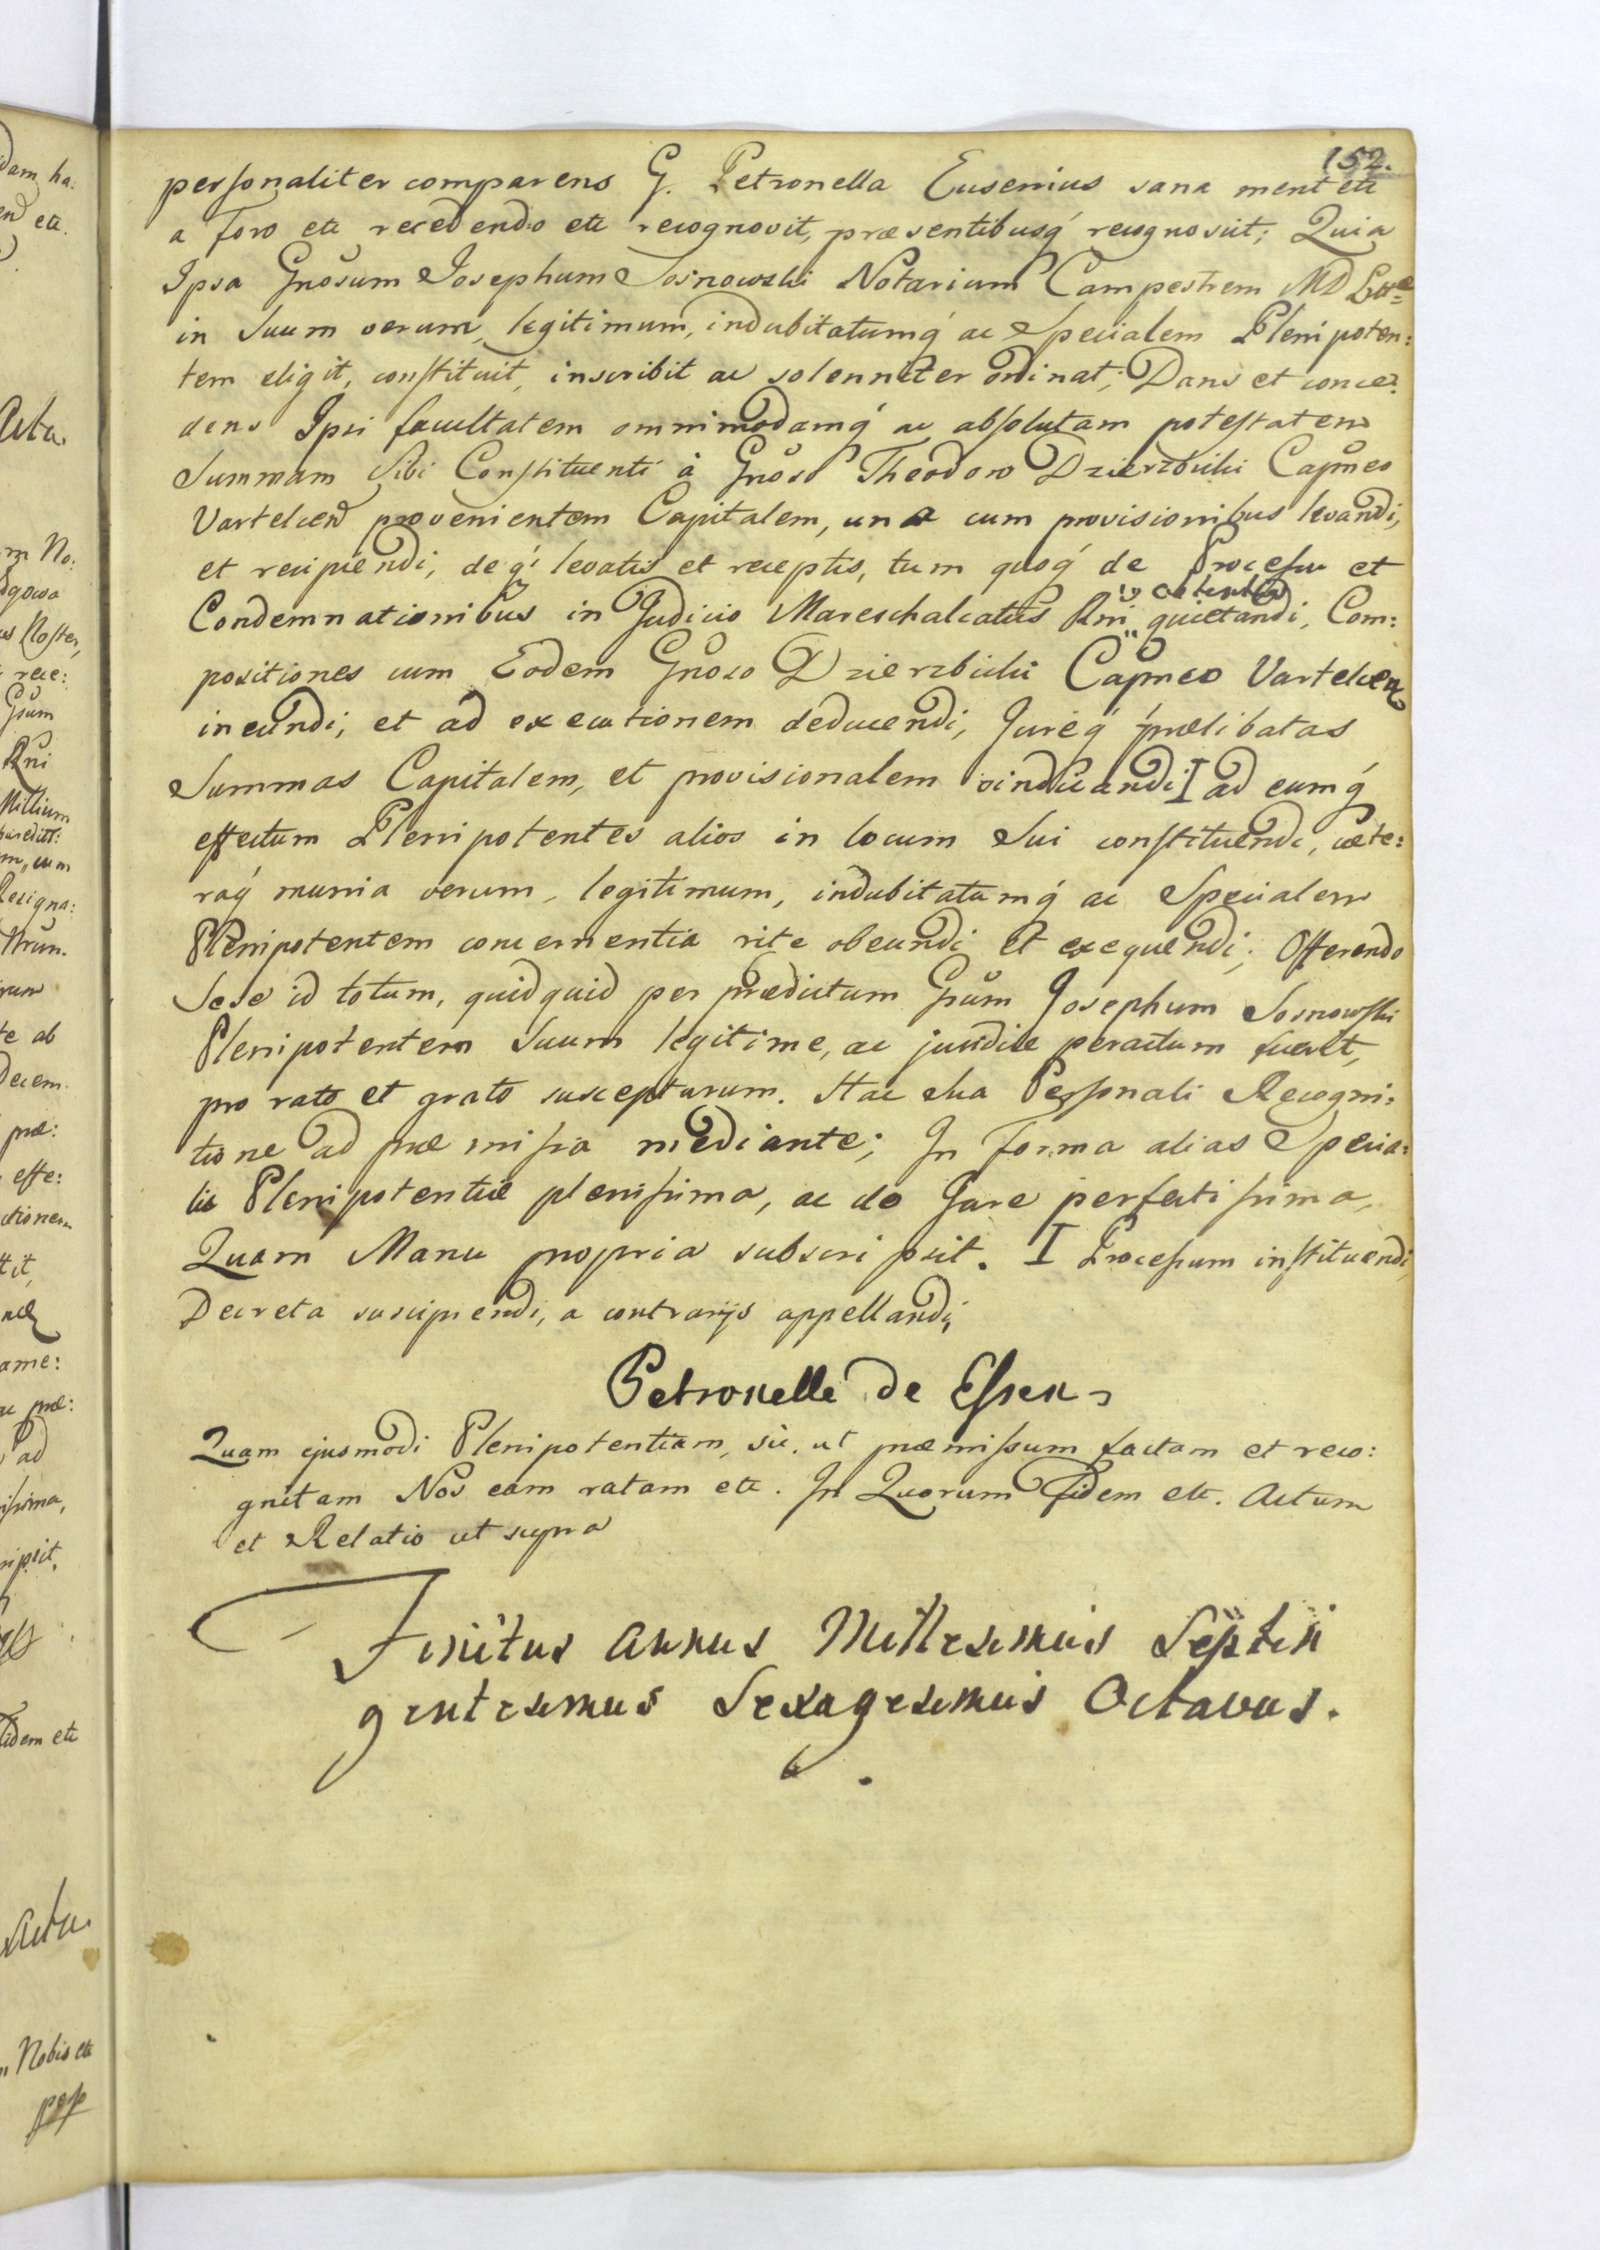 152.
personaliter comparens G. Petronella Essenius sana mente etc
a foro etc recedendo etc recognovit, præsentibusq́ recognoscit; Quia
Ipsa Gnosum Josephum Sosnowski Notarium Campestrem MD Litt̄æ
in Suum verum, legitimum, indubitatumq́ ac Specialem Plenipoten:
tem eligit, constituit, inscribit ac solenniter ordinat; Dans et conce:
dens Ipsi facultatem omnimodamq́ ac absolutam potestatem
Summam Sibi Constituenti à Gnoso Theodoro Dzierzbicki Capneo
Vartelcen provenientem Capitalem, una cum provisionibus levandi,
et recipiendi, de q́ levatis et receptis, tum quoq́ de Processu et
Condemnationibus in Judicio Mareschalcatus Rni obtentis quietandi, Com:
positiones cum Eodem Gnoso Dzierzbicki Capneo Vartelcen
ineundi, et ad executionem deducendi, Jureq́ prælibatas
Summas Capitalem, et provisionalem vindicandi I ad eumq́
effectum Plenipotentes alios in locum Sui constituendi, cæte:
raq́ munia verum, legitimum, indubitatumq́ ac Specialem
Plenipotentem concernentia rite obeundi et exequendi; Offerendo
Sese id totum, quidquid per prædictum Gsum Josephum Sosnowski
Plenipotentem Suum legitime, ac juridice peractum fuerit,
pro rato et grato suscepturum. Hac Sua Personali Recogni:
tione ad præmissa mediante; In forma alias Specia:
lis Plenipotentiæ plenissima, ac de Jure perfectissima,
Quam Manu propria subscripsit. I Processum instituendi,
Decreta suscipiendi, a contrarijs appellandi,
Petronelle de Essen
Quam ejusmodi Plenipotentiam, sic, ut præmissum factam et reco:
gnitam Nos eam ratam etc. In Quorum Fidem etc. Actum
et Relatio ut supra
Finitus Annus Millesimus Septin
gentesimus Sexagesimus Octavus.